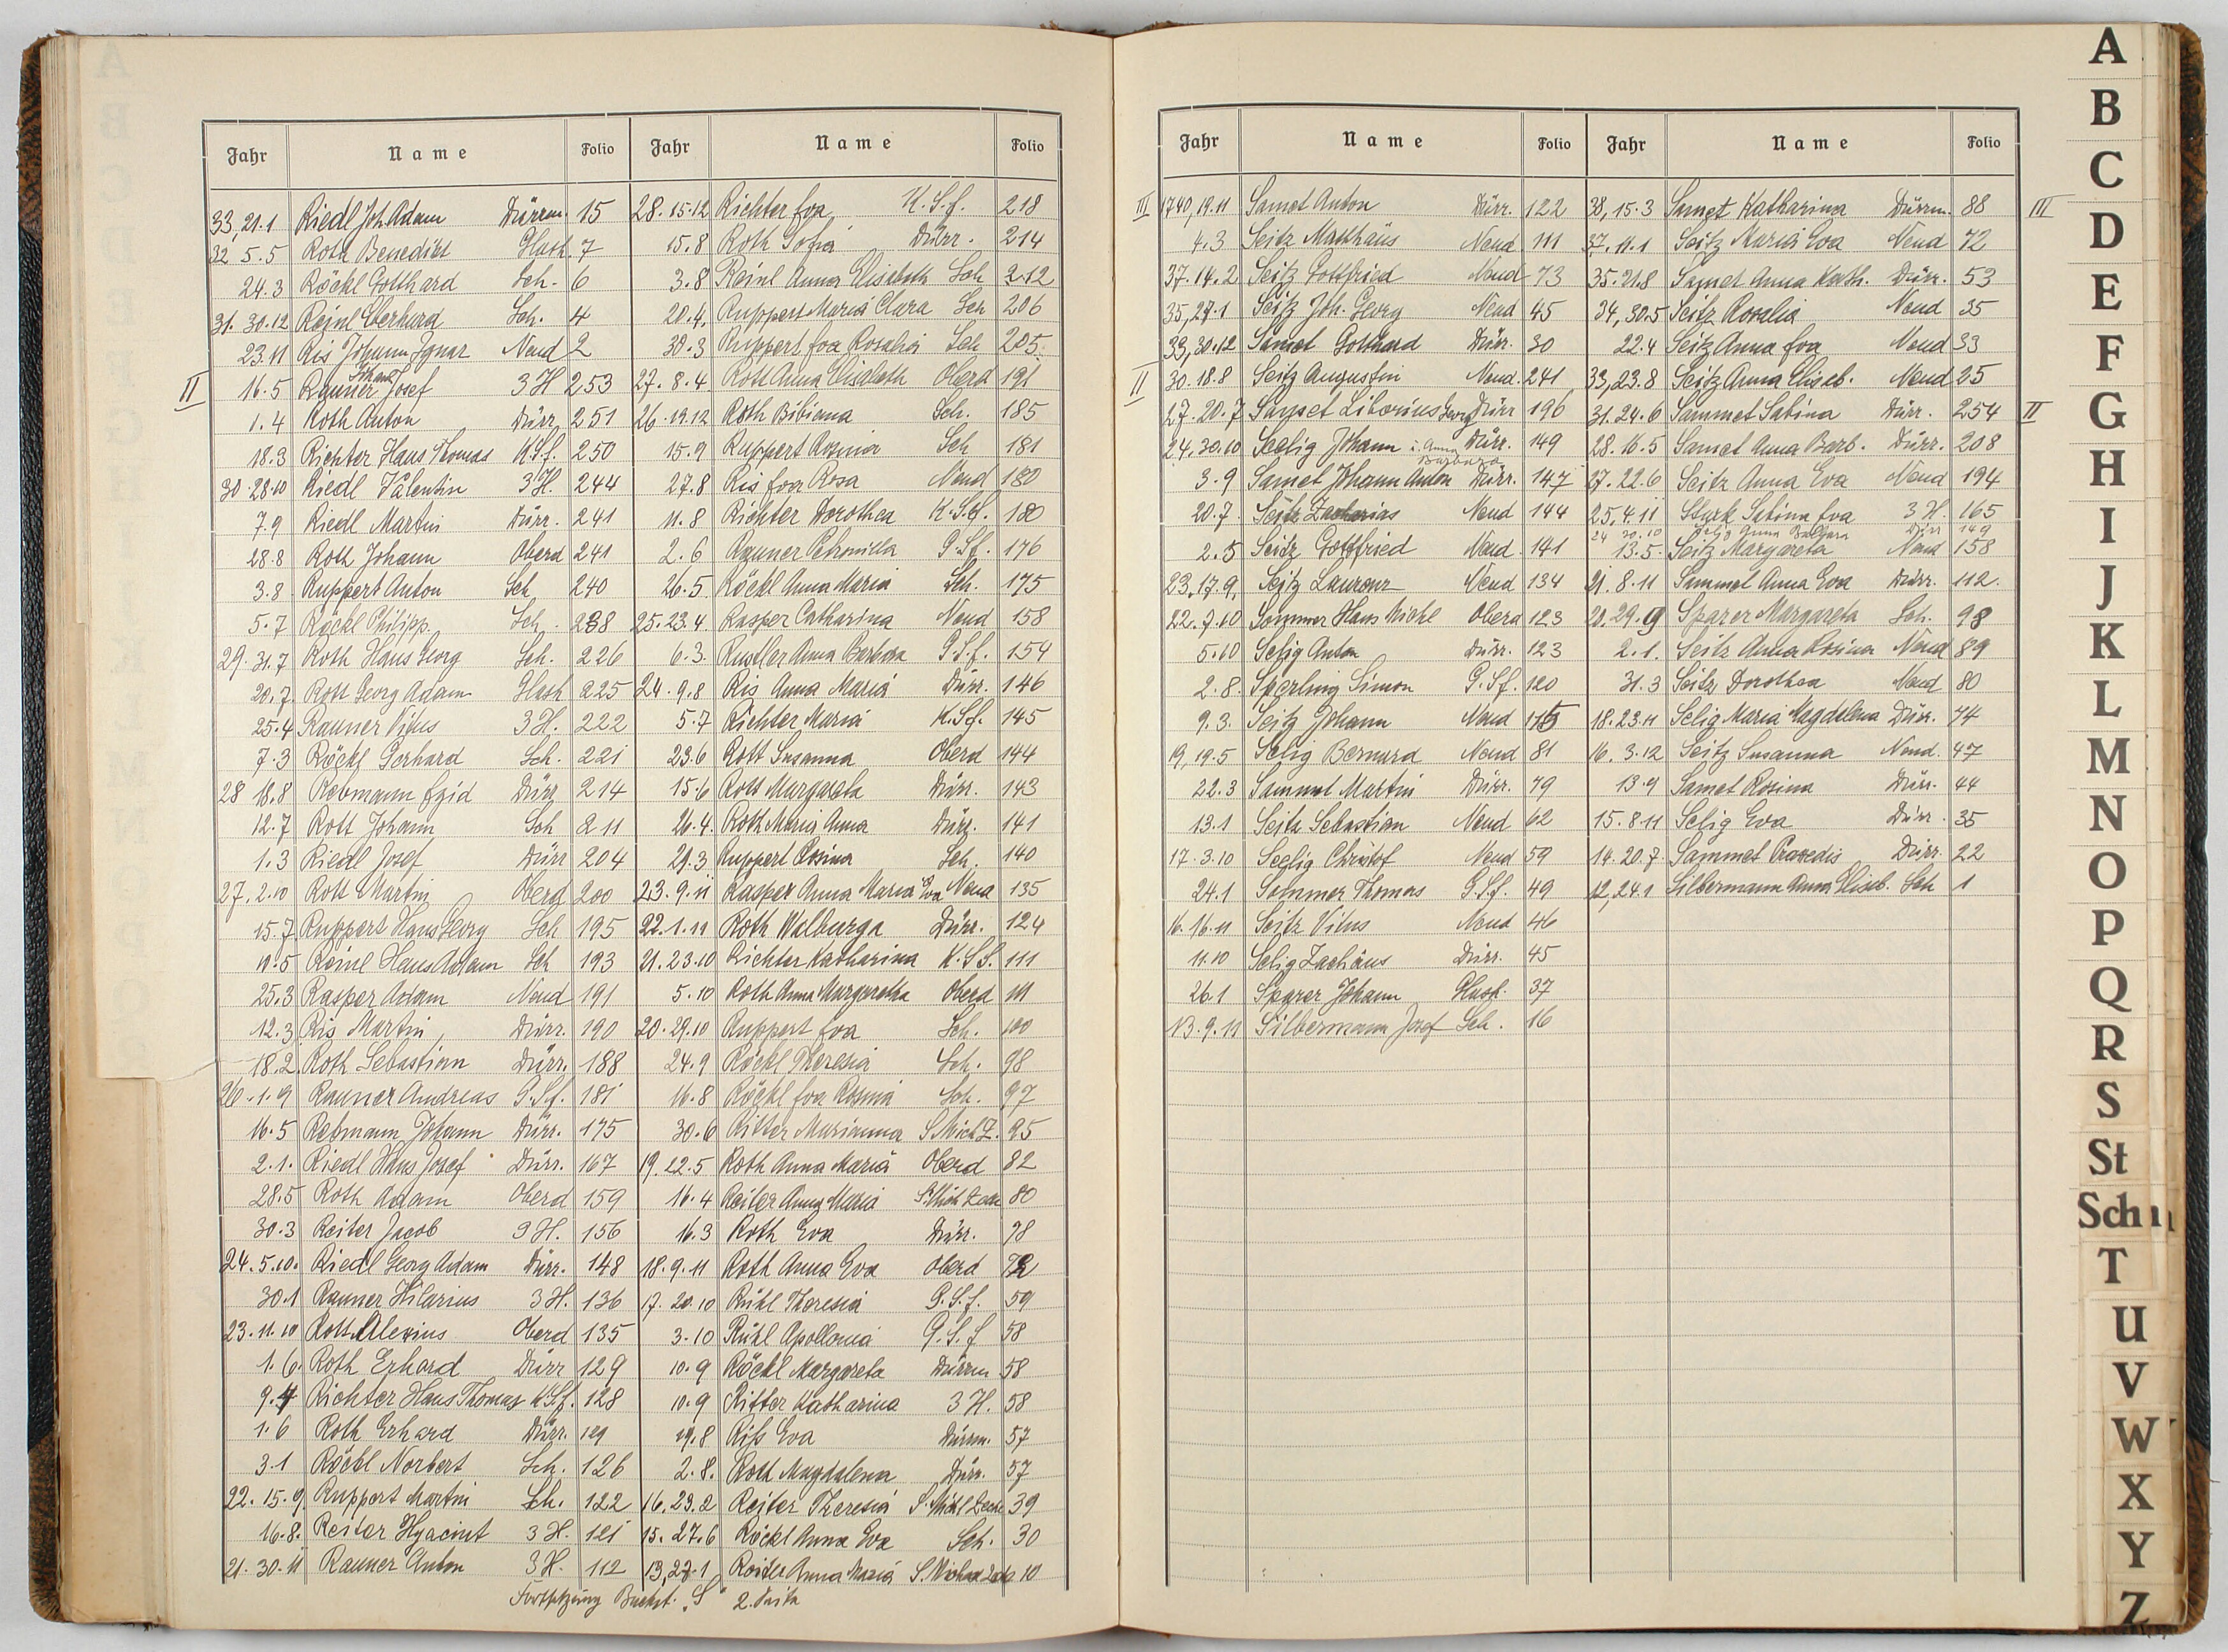 Jahr Name Folio
33, 21.1 Riedl Joh. Adam Dürrm. 15
32 5.5 Roth Benedikt Hath 7
24.3 Röckl Gotthard Sch. 6
31. 30.12 Reinl Eberhard Sch. 4
23.11 Ris Johann Ignaz Neud 2
Johann
II 16.5 Rauner Josef 3 H 253
1.4 Roth Anton Dürr 251
18.3 Richter Hans Thomas K.S.f. 250
30. 28.10 Riedl Valentin 3 H. 244
7.9 Riedl Martin Dürr. 241
28.8 Roth Johann Oberd 241
3.8 Ruppert Anton Sch 240
5.7 Röckl Philipp Sch. 238
29. 31.7 Roth Hans Georg Sch. 226
20.7 Rott Georg Adam Hath 225
25.4 Rauner Vitus 3 H. 222
7.3 Röckl Gerhard Sch. 221
28 18.8 Rebmann Egid Dürr 214
12.7 Rott Johann Sch 211
1.3 Riedl Josef Dürr 204
27. 2.10 Rott Martin Oberd 200
15.7 Ruppert Hans Georg Sch 195
11.5 Reinl Hans Adam Sch 193
25.3 Rasper Adam Neud 191
12.3 Ris Martin Dürr. 190
18.2 Roth Sebastian Dürr. 188
26. 1.9 Rauner Andreas G.S.f. 181
16.5 Rebmann Johann Dürr. 175
2.1. Riedl Hans Josef Dürr. 167
28.5 Roth Adam Oberd 159
30.3 Reiter Jacob 3 H. 156
24. 5.10. Riedl Georg Adam Dürr. 148
30.1 Rauner Hilarius 3 H. 136
23. 11.10 Rott Alexius Oberd 135
1.6. Roth Erhard Dürr 129
9.4 Richter Hans Thomas K.S.f. 128
1.6 Roth Erhard Dürr. 129
3.1 Röckl Norbert Sch. 126
22. 15.9 Ruppert Martin Sch. 122
16.8. Reiter Hyacint 3 H. 121
21. 30.11 Rauner Anton 3 H. 112
Jahr Name Folio
28. 15.12 Richter Eva K.S.f. 218
15.8 Roth Sofia Dürr. 214
3.8 Reinl Anna Elisabeth Sch 212
20.4. Ruppert Maria Clara Sch 206
30.3 Ruppert Eva Rosalia Sch 205
27. 8.4 Rott Anna Elisabeth Oberd 191
26. 19.12 Roth Bibiana Sch. 185
15.9 Ruppert Rosina Sch 181
27.8 Ris Eva Rosa Neud 180
11.8 Richter Dorothea K.S.f. 180
2.6 Rauner Petronilla G.S.f. 176
26.5 Röckl Anna Maria Sch. 175
25. 23.4 Rasper Catharina Neud 158
6.3. Rustler Anna Barbara G.S.f. 154
24. 9.8 Ris Anna Maria Dürr. 146
5.7 Richter Maria K.S.f. 145
23.6 Rott Susanna Oberd 144
15.6 Rott Margareta Dürr. 143
26.4. Roth Maria Anna Dürr. 141
29.3 Ruppert Rosina Sch. 140
23. 9.11 Rasper Anna Maria Eva Neud 135
22. 1.11 Roth Walburga Dürr. 124
21. 23.10 Richter Katharina K.S.f. 111
5.10 Roth Anna Margaretha Oberd 111
20. 29.10 Ruppert Eva Sch. 100
24.9 Röckl Theresia Sch. 98
16.8 Röckl Eva Rosina Sch. 97
30.6 Ritter Marianna S.Mich.Z. 95
19. 22.5 Roth Anna Maria Oberd 82
16.4 Reiter Anna Maria S.Mich. Zech 80
16.3 Roth Eva Dürr. 78
18. 9.11 Roth Anna Eva Oberd 72
17. 20.10 Rühl Theresia G.S.f. 59
3.10 Rühl Apollonia G.S.f 58
10.9 Röckl Margareta Dürrm 58
10.9 Ritter Katharina 3 H. 58
19.8 Riß Eva Dürrm. 57
2.8. Roth Magdalena Dürr. 57
16. 23.2 Reiter Theresia S.Michl Zeche 39
15. 27.6 Röckl Anna Eva Sch. 30
13, 27.1 Reiter Anna Maria S.Michael Zeche 10
Fortsetzung Buchst. „S" 2. Seite
Jahr Name Folio
III 1740, 19.11 Samet Anton Dürr. 122
4.3 Seitz Matthäus Neud 111
37. 14.2 Seitz Gottfried Neud 73
35, 27.1 Seitz Joh. Georg Neud 45
33, 30.12 Samet Gotthard Dürr. 30
II 30. 18.8 Seitz Augustin Neud. 241
27. 20.7 Samset Liborius Georg Dürr 196
24. 30.10 Seelig Johann u. Anna Dürr. 149
Barbara
3.9 Samet Johann Anton Dürr. 147
20.7 Seitz Zacharias Neud 144
2.5 Seitz Gottfried Neud. 141
23, 17.9, Seitz Laurenz Neud 134
22. 7.10 Sommer Hans Michl Oberd 123
5.10 Selig Anton Dürr. 123
2.8. Sperling Simon G.S.f. 120
9.3. Seitz Johann Neud 115
19, 19.5 Selig Bernard Neud 81
22.3 Sammet Martin Dürr. 79
13.1 Seitz Sebastian Neud 62
17. 3.10 Seelig Christof Neud 59
24.1 Sommer Thomas G.S.f. 49
16. 16.11 Seitz Vitus Neud 46
11.10 Selig Zachäus Dürr. 45
26.1 Sparer Johann Hath. 37
13. 9.11 Silbermann Josef Sch. 16
Jahr Name Folio
38, 15.3 Samet Katharina Dürrm. 88 III
37. 11.1 Seitz Maria Eva Neud 72
35. 21.8 Samet Anna Kath. Dürr. 53
34, 30.5 Seitz Rosalia Neud 35
22.4 Seitz Anna Eva Neud 33
33, 23.8 Seitz Anna Eliseb. Neud 25
31. 24.6 Sammet Sabina Dürr. 254 II
28. 16.5 Samet Anna Barb. Dürr. 208
27. 22.6 Seitz Anna Eva Neud 194
25, 4.11 Stark Sabina Eva 3 H. 165
24 30.10 Selig Anna Barbara Dürr 149
13.5. Seitz Margareta Neud 158
21. 8.11 Sammet Anna Eva Dürr. 112.
20. 29.9 Sparer Margareta Sch. 98
2.1. Seitz Anna Rosina Neud 89
31.3 Seitz Dorothea Neud 80
18. 23.11 Selig Maria Magdalena Dürr. 74
16. 3.12 Seitz Susanna Neud. 47
13.9 Samet Rosina Dürr. 44
15. 8.11 Selig Eva Dürr. 35
14. 20.7. Sammet Praxedis Dürr. 22
12, 24.1 Silbermann Anna Eliseb. Sch 1
A
B
C
D
E
F
G
H
I
J
K
L
M
N
O
P
Q
R
S
St
Sch
T
U
V
W
X
Y
Z